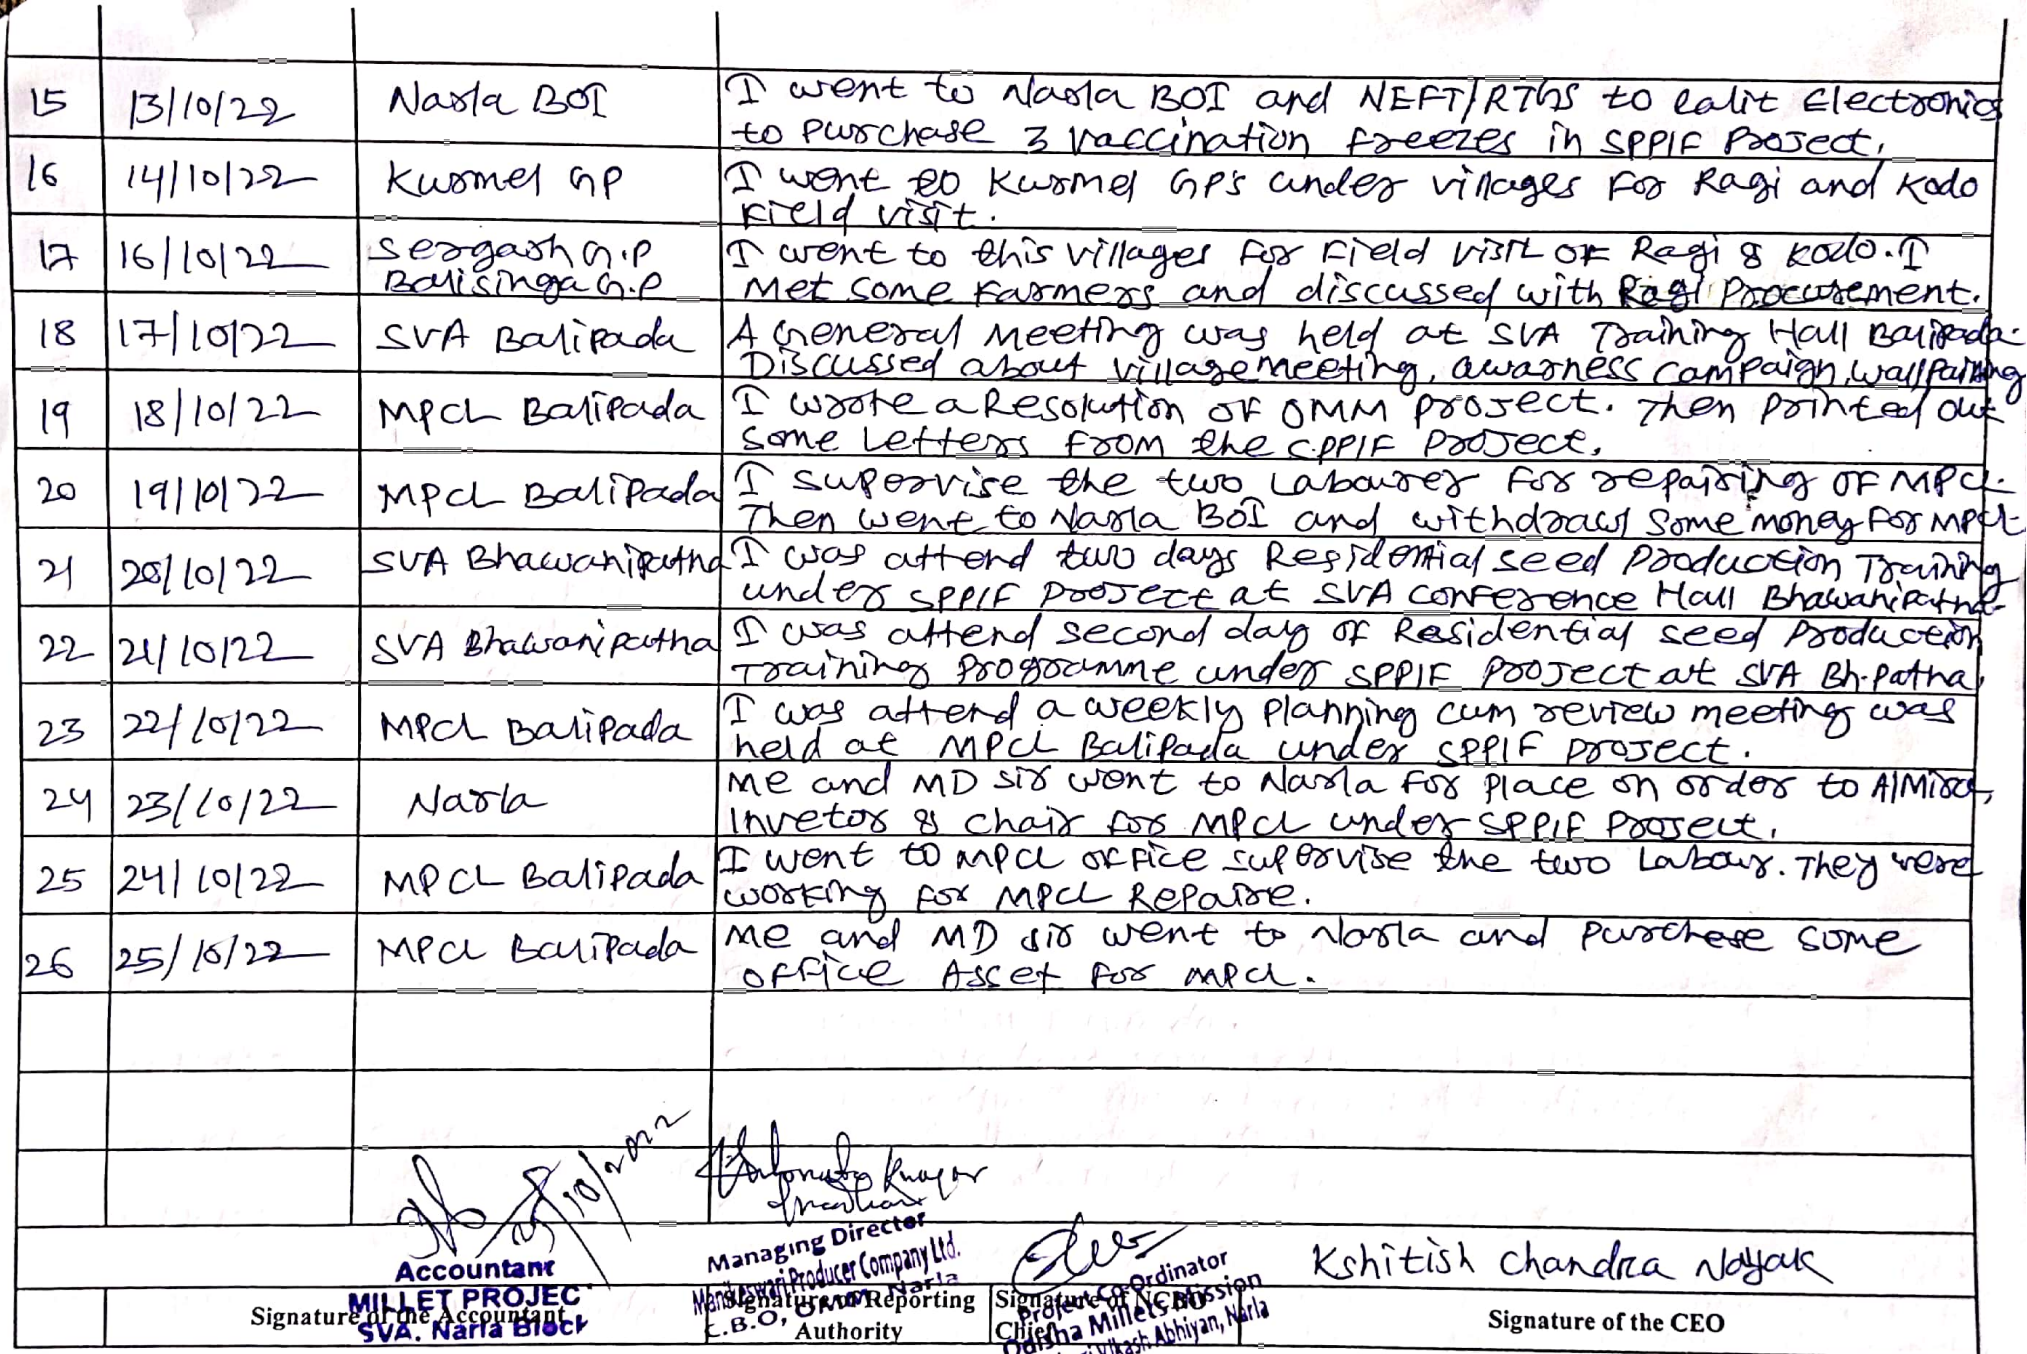 15 13/10/22 Narla BOI I went to Narla BOI and NEFT/RTGS to Lalit Electronics
to purchase 3 vaccination freezes in SPPIF Project.
16 14/10/22 Kurmel GP I went to Kurmel GP's under villages For Ragi and Kodo
Field visit.
17 16/10/22 Sergarh G.P I went to this villages For Field visit OF Ragi & Kodo. I
Balisinga G.P Met some Farmers and discussed with Ragi Procurement.
18 17/10/22 SVA Balipada A General Meeting was held at SVA Training Hall Balipada.
Discussed about village meeting, awarness campaign, wall
19 18/10/22 MPCL Balipada I wrote a Resolution OF OMM project. Then printed out
some Letters From the SPPIF Project.
20 19/10/22 MPCL Balipada I supervise the two Labourer For repairing OF MPCL.
Then went to Narla BOI and withdraw some money For MPCL
21 20/10/22 SVA Bhawanipatna I was attend two days Residential seed Production Training
under SPPIF Project at SVA Conference Hall Bhawanipatna.
22 21/10/22 SVA Bhawanipatna I was attend second day OF Residential seed Production
Training Programme under SPPIF Project at SVA Bh.Patna.
23 22/10/22 MPCL Balipada I was attend a weekly planning cum review meeting was
held at MPCL Balipada under SPPIF Project.
24 23/10/22 Narla Me and MD sir went to Narla For place on order to Almira,
Invetor & chair for MPCL under SPPIF Project.
25 24/10/22 MPCL Balipada I went to MPCL office supervise the two Labour. They were
working For MPCL Repaire.
26 25/10/22 MPCL Balipada Me and MD sir went to Narla and purchese some
office Asset For MPCL.
Managing Director
Manikeswari Producer Company Ltd.
C.B.O, OMM, Narla
Accountant
MILLET PROJEC
SVA. Narla Block
Project Co-Ordinator
Odisha Millets Mission
Vikash Abhiyan, Narla
Kshitish Chandra Nayak
Signature of the Accountant
Signature of Reporting
Authority
Signature of NCBO
Chief
Signature of the CEO